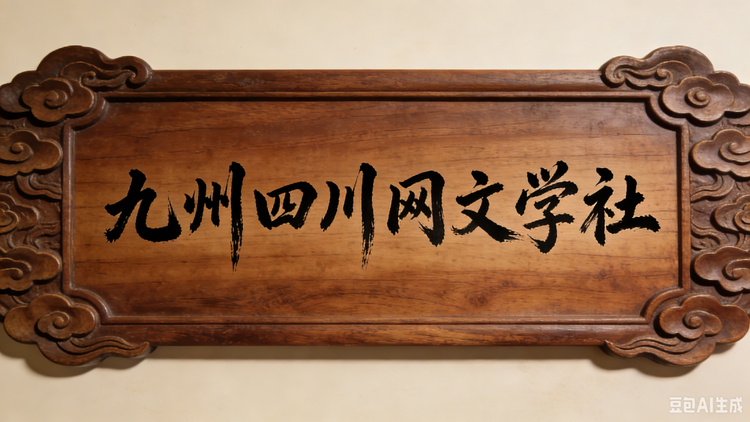 九州四川网文学社
豆包AI生成